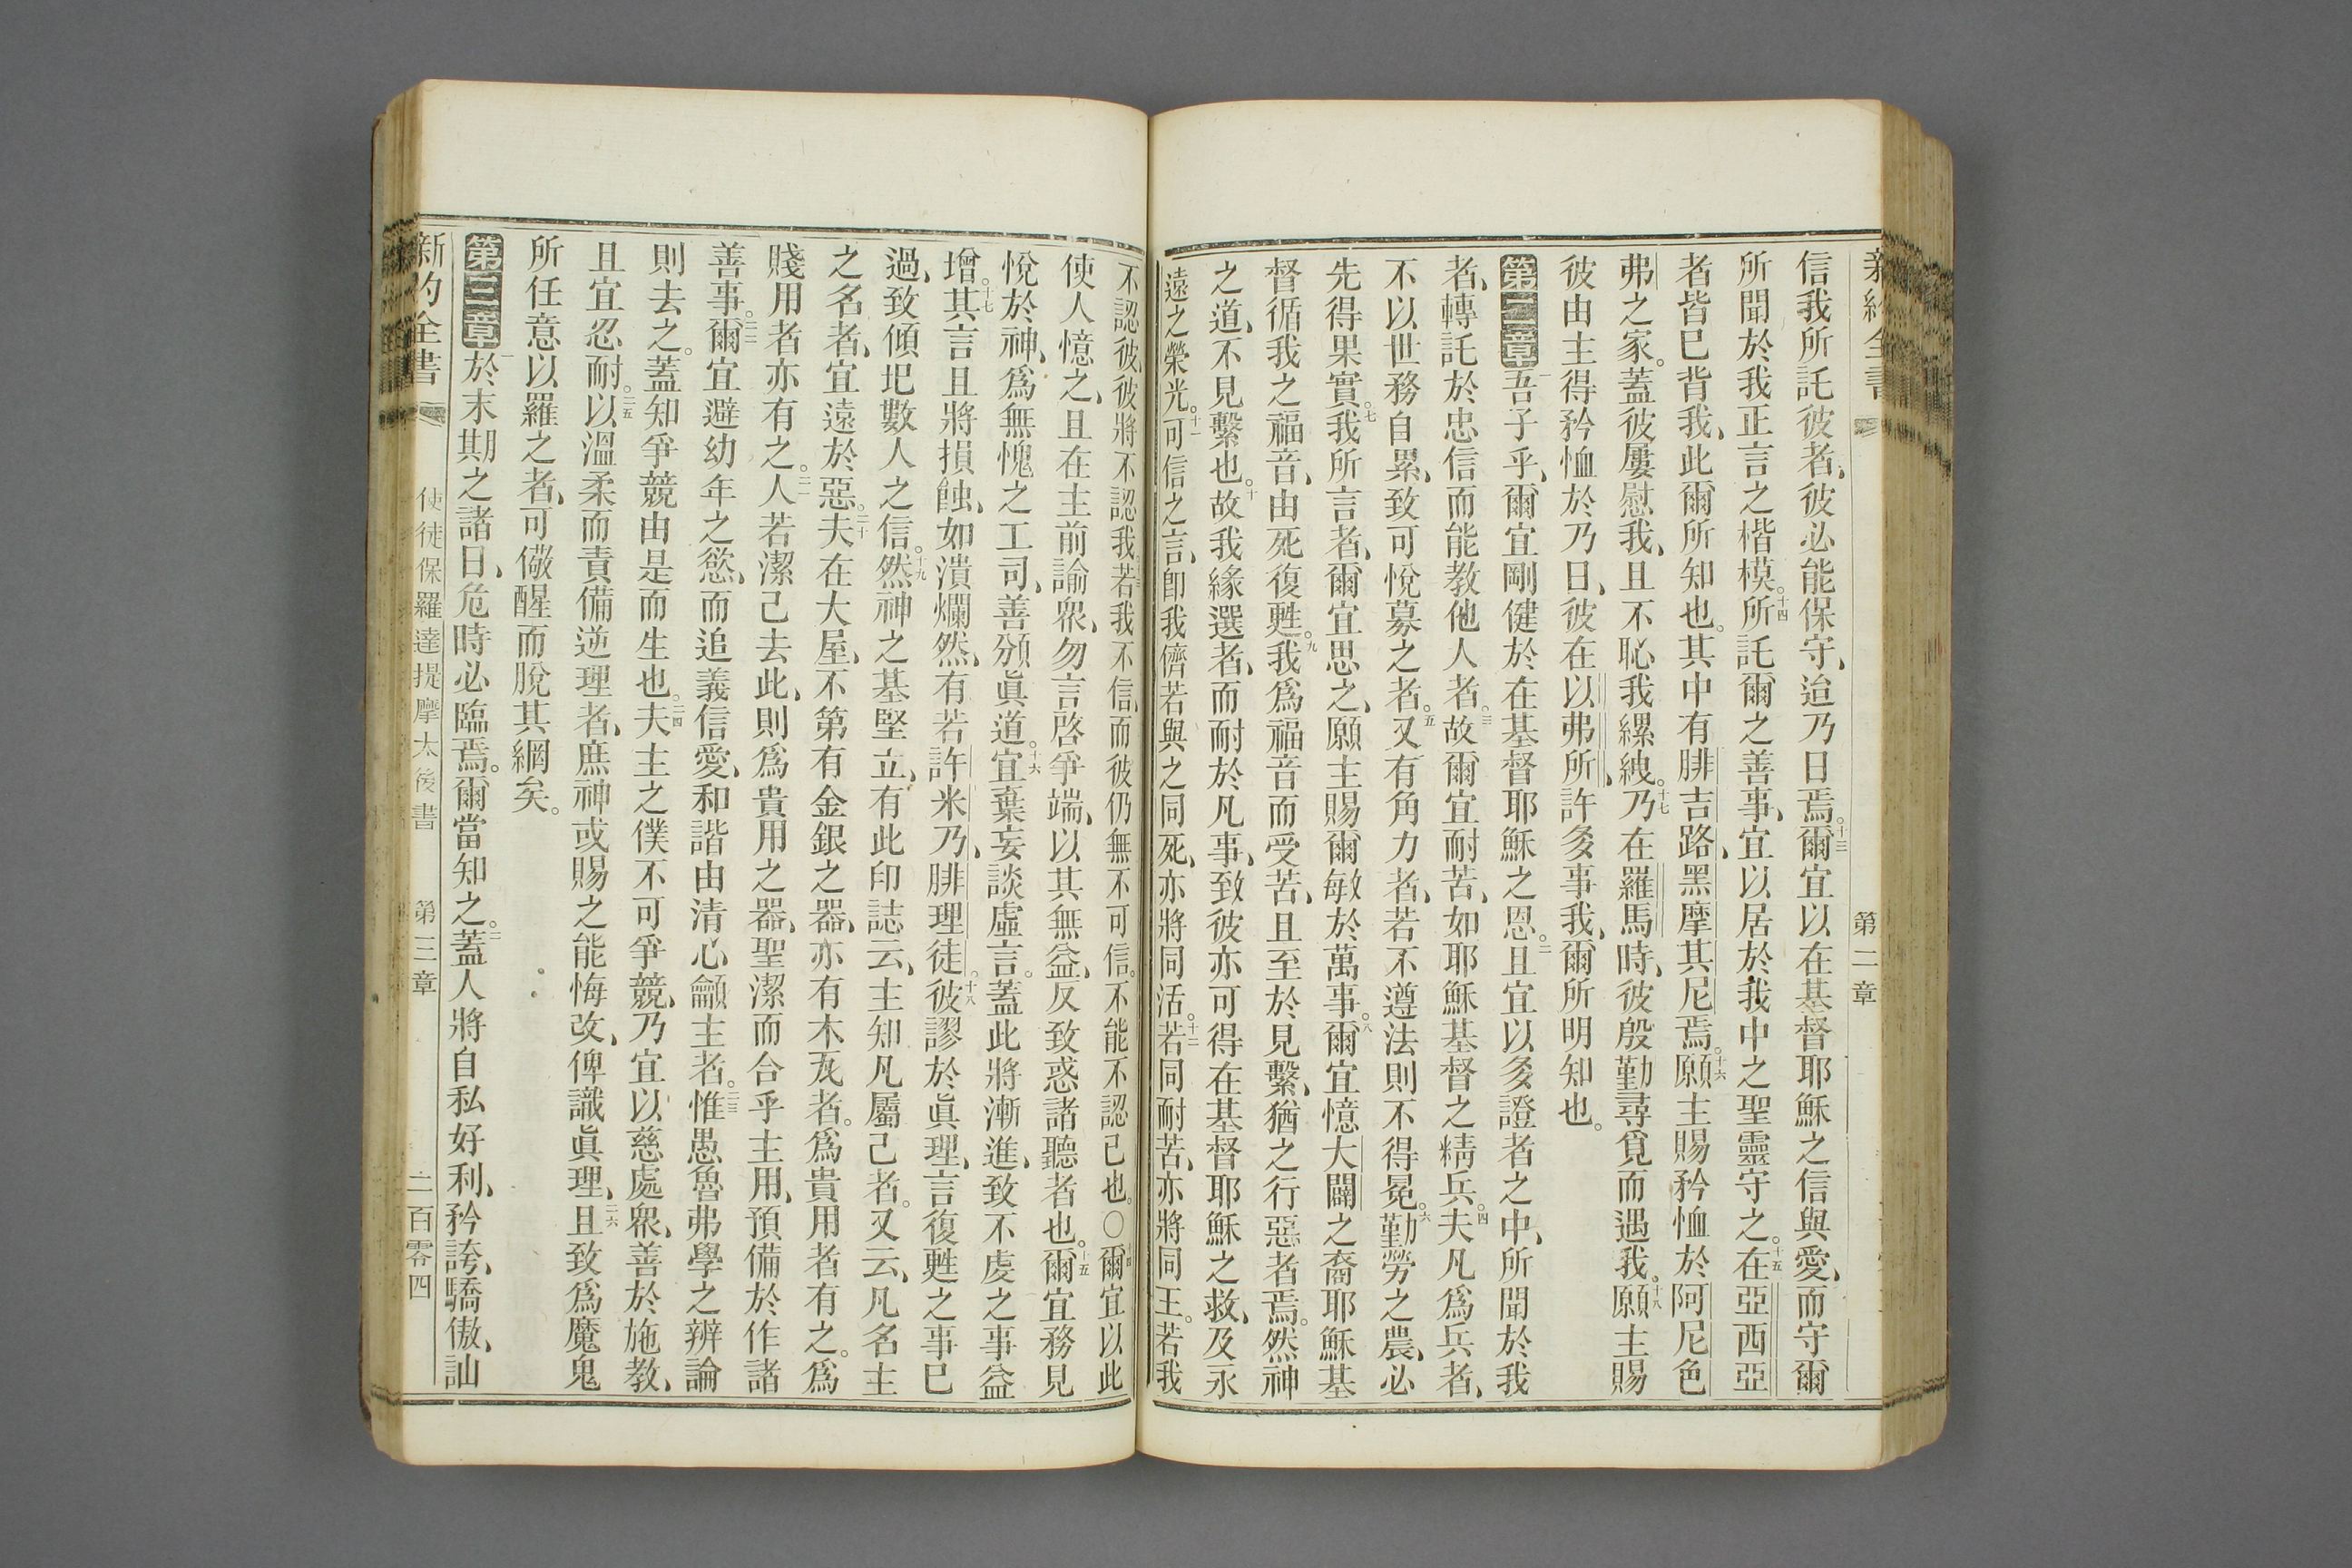 新約全書
第二章
信我所託彼者、彼必能保守、迨乃日焉。十三爾宜以在基督耶穌之信與愛、而守爾
所聞於我正言之楷模。十四所託爾之善事、宜以居於我中之聖靈守之。十五在亞西亞
者皆已背我、此爾所知也。其中有腓吉路、黑摩其尼焉。十六願主賜矜恤於阿尼色
弗之家。蓋彼屢慰我、且不恥我縲絏。十七乃在羅馬時、彼殷勤尋覓而遇我。十八願主賜
彼由主得矜恤於乃日、彼在以弗所、許多事我、爾所明知也。
第二章一吾子乎、爾宜剛健於在基督耶穌之恩。二且宜以多證者之中、所聞於我
者、轉託於忠信而能教他人者。三故爾宜耐苦、如耶穌基督之精兵。四夫凡爲兵者、
不以世務自累、致可悅募之者。五又有角力者、若不遵法則不得冕。六勤勞之農、必
先得果實。七我所言者、爾宜思之、願主賜爾敏於萬事。八爾宜憶大闢之裔耶穌基
督循我之福音、由死復甦。九我爲福音而受苦、且至於見繫、猶之行惡者焉。然神
之道、不見繫也。十故我緣選者、而耐於凡事、致彼亦可得在基督耶穌之救、及永
遠之榮光。十一可信之言、卽我儕若與之同死、亦將同活。十二若同耐苦、亦將同王。若我
不認彼、彼將不認我。十三若我不信、而彼仍無不可信。不能不認己也。〇十四爾宜以此
使人憶之、且在主前諭衆、勿言啓爭端、以其無益、反致惑諸聽者也。十五爾宜務見
悅於神、爲無愧之工司、善頒眞道。十六宜棄妄談虛言。蓋此將漸進、致不虔之事益
增。十七其言且將損蝕、如潰爛然、有若許米乃、腓理徒。十八彼謬於眞理、言復甦之事已
過、致傾圯數人之信。十九然神之基堅立、有此印誌云、主知凡屬己者。又云、凡名主
之名者、宜遠於惡。二十夫在大屋、不第有金銀之器、亦有木瓦者。爲貴用者有之。爲
賤用者亦有之。二一人若潔己去此、則爲貴用之器、聖潔而合乎主用、預備於作諸
善事。二二爾宜避幼年之慾、而追義信愛、和諧由清心龥主者。二三惟愚魯弗學之辨論
則去之。蓋知爭競由是而生也。二四夫主之僕不可爭競、乃宜以慈處衆、善於施教、
且宜忍耐。二五以溫柔而責備逆理者、庶神或賜之能悔改、俾識眞理、二六且致爲魔鬼
所任意以羅之者、可儆醒而脫其網矣。
第三章一於末期之諸日、危時必臨焉。爾當知之。二蓋人將自私好利、矜誇、驕傲、訕
新約全書
使徒保羅達提摩太後書
第三章
二百零四